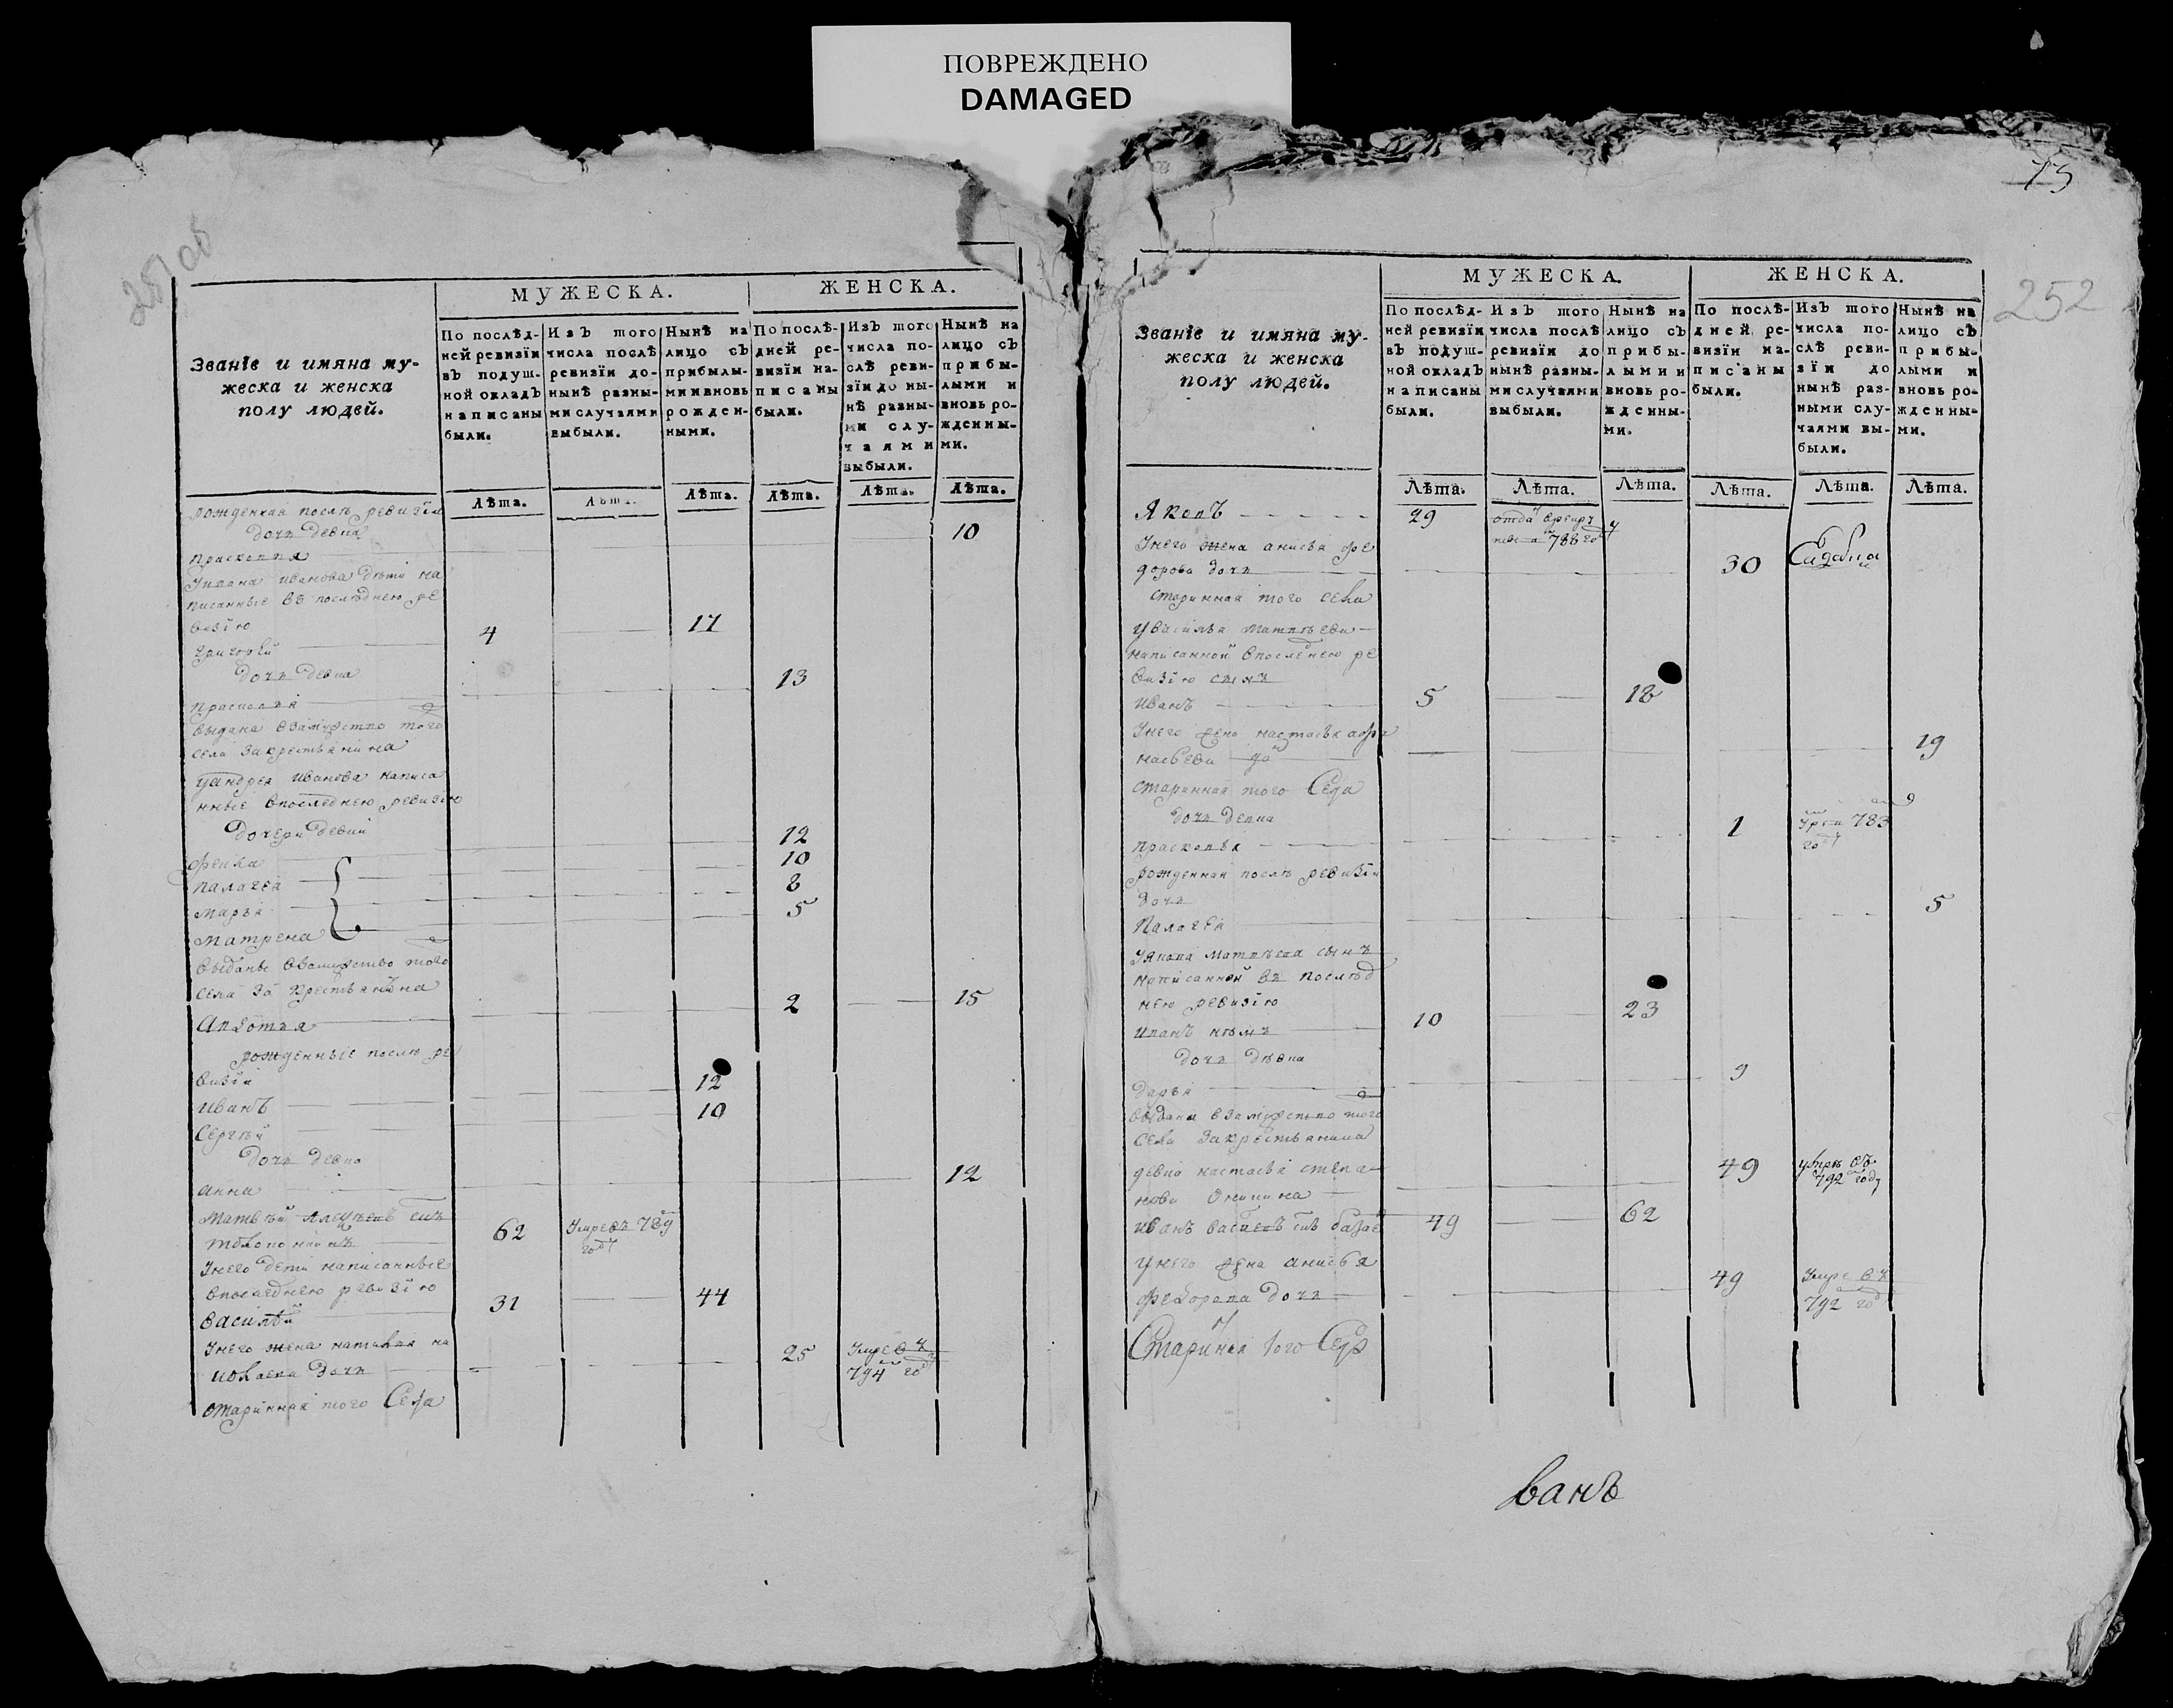 ПОВРЕЖДЕНО
DAMAGED
251 об
МУЖЕСКА.
ЖЕНСКА.
Званіе и имяна му-
жеска и женска
полу людей.
По послѣд-
ней ревизіи
въ подуш-
ной окладъ
написаны
были.
Изъ того
числа послѣ
ревизіи до-
нынѣ разны-
ми случаями
выбыли.
Нынѣ на
лицо съ
прибылы-
ми и вновь
рожден-
ными.
По послѣ-
дней ре-
визіи на-
писаны
были.
Изъ того
числа по-
слѣ реви-
зіи до ны-
нѣ разны-
ми слу-
чаями
выбыли.
Нынѣ на
лицо съ
прибы-
лыми и
вновь ро-
жденны-
ми.
Лѣта. Лѣта. Лѣта. Лѣта. Лѣта. Лѣта.
рожденная послѣ ревизіи
дочь девка 10
прасковья
Уивана иванова дѣти на
писанные въ последнею ре
визїю
григорей 4 17
дочь девка 13
прасковья
выдана взамужство того
села закрестьянина
уандрея иванова написа
нные впоследнею ревизїю
дочери девки
фекла 12
палагея 10
марья 8
матрена 5
выданы взамужство того
села за крестьянина
авдотья 2 15
рожденные послѣ ре
визїи
иванъ 12
сергѣй 10
дочь девка
анна 12
матвѣй
62 Умре въ 789
году
Унего дети написанные
впоследнею ревизїю
василѣй 31 44
Унего жена наталья ни
колаева дочь 25 Умре въ
794 году
старинная того Села
73
252
МУЖЕСКА.
ЖЕНСКА.
Званіе и имяна му-
жеска и женска
полу людей.
По послѣд-
ней ревизіи
въ подуш-
ной окладъ
написаны
были.
Изъ того
числа послѣ
ревизіи до
нынѣ разны-
ми случаями
выбыли.
Нынѣ на
лицо съ
прибы-
лыми и
вновь ро-
жденны-
ми.
По послѣ-
дней ре-
визіи на-
писаны
были.
Изъ того
числа по-
слѣ реви-
зіи до
нынѣ раз-
ными слу-
чаями вы-
были.
Нынѣ на
лицо съ
прибы-
лыми и
вновь ро-
жденны-
ми.
Лѣта. Лѣта. Лѣта. Лѣта. Лѣта. Лѣта.
Яковъ 29 788 году
Унего жена анисья фе
дорова дочь 30
старинная того села
увасилья матвѣева
написанной впоследнею ре
визїю сынъ
иванъ 5 18
Унего жена настасья афа
насьева до 19
старинная того Села
дочь девка
прасковья 1 783
году
рожденная послѣ ревизїи
дочь
Палагея 5
Уякова матвѣева сынъ
написанной въ послѣд
нею ревизїю
иванъ нѣмъ 10 23
дочь дѣвка
дарья 9
выдана взамужство того
села закрестьянина
девка настасья степа
нова 49 умре въ
792 году
иванъ 49 62
унего жена анисья
федорова дочь 49 Умре въ
792 году
Старинная того Села
Иванъ